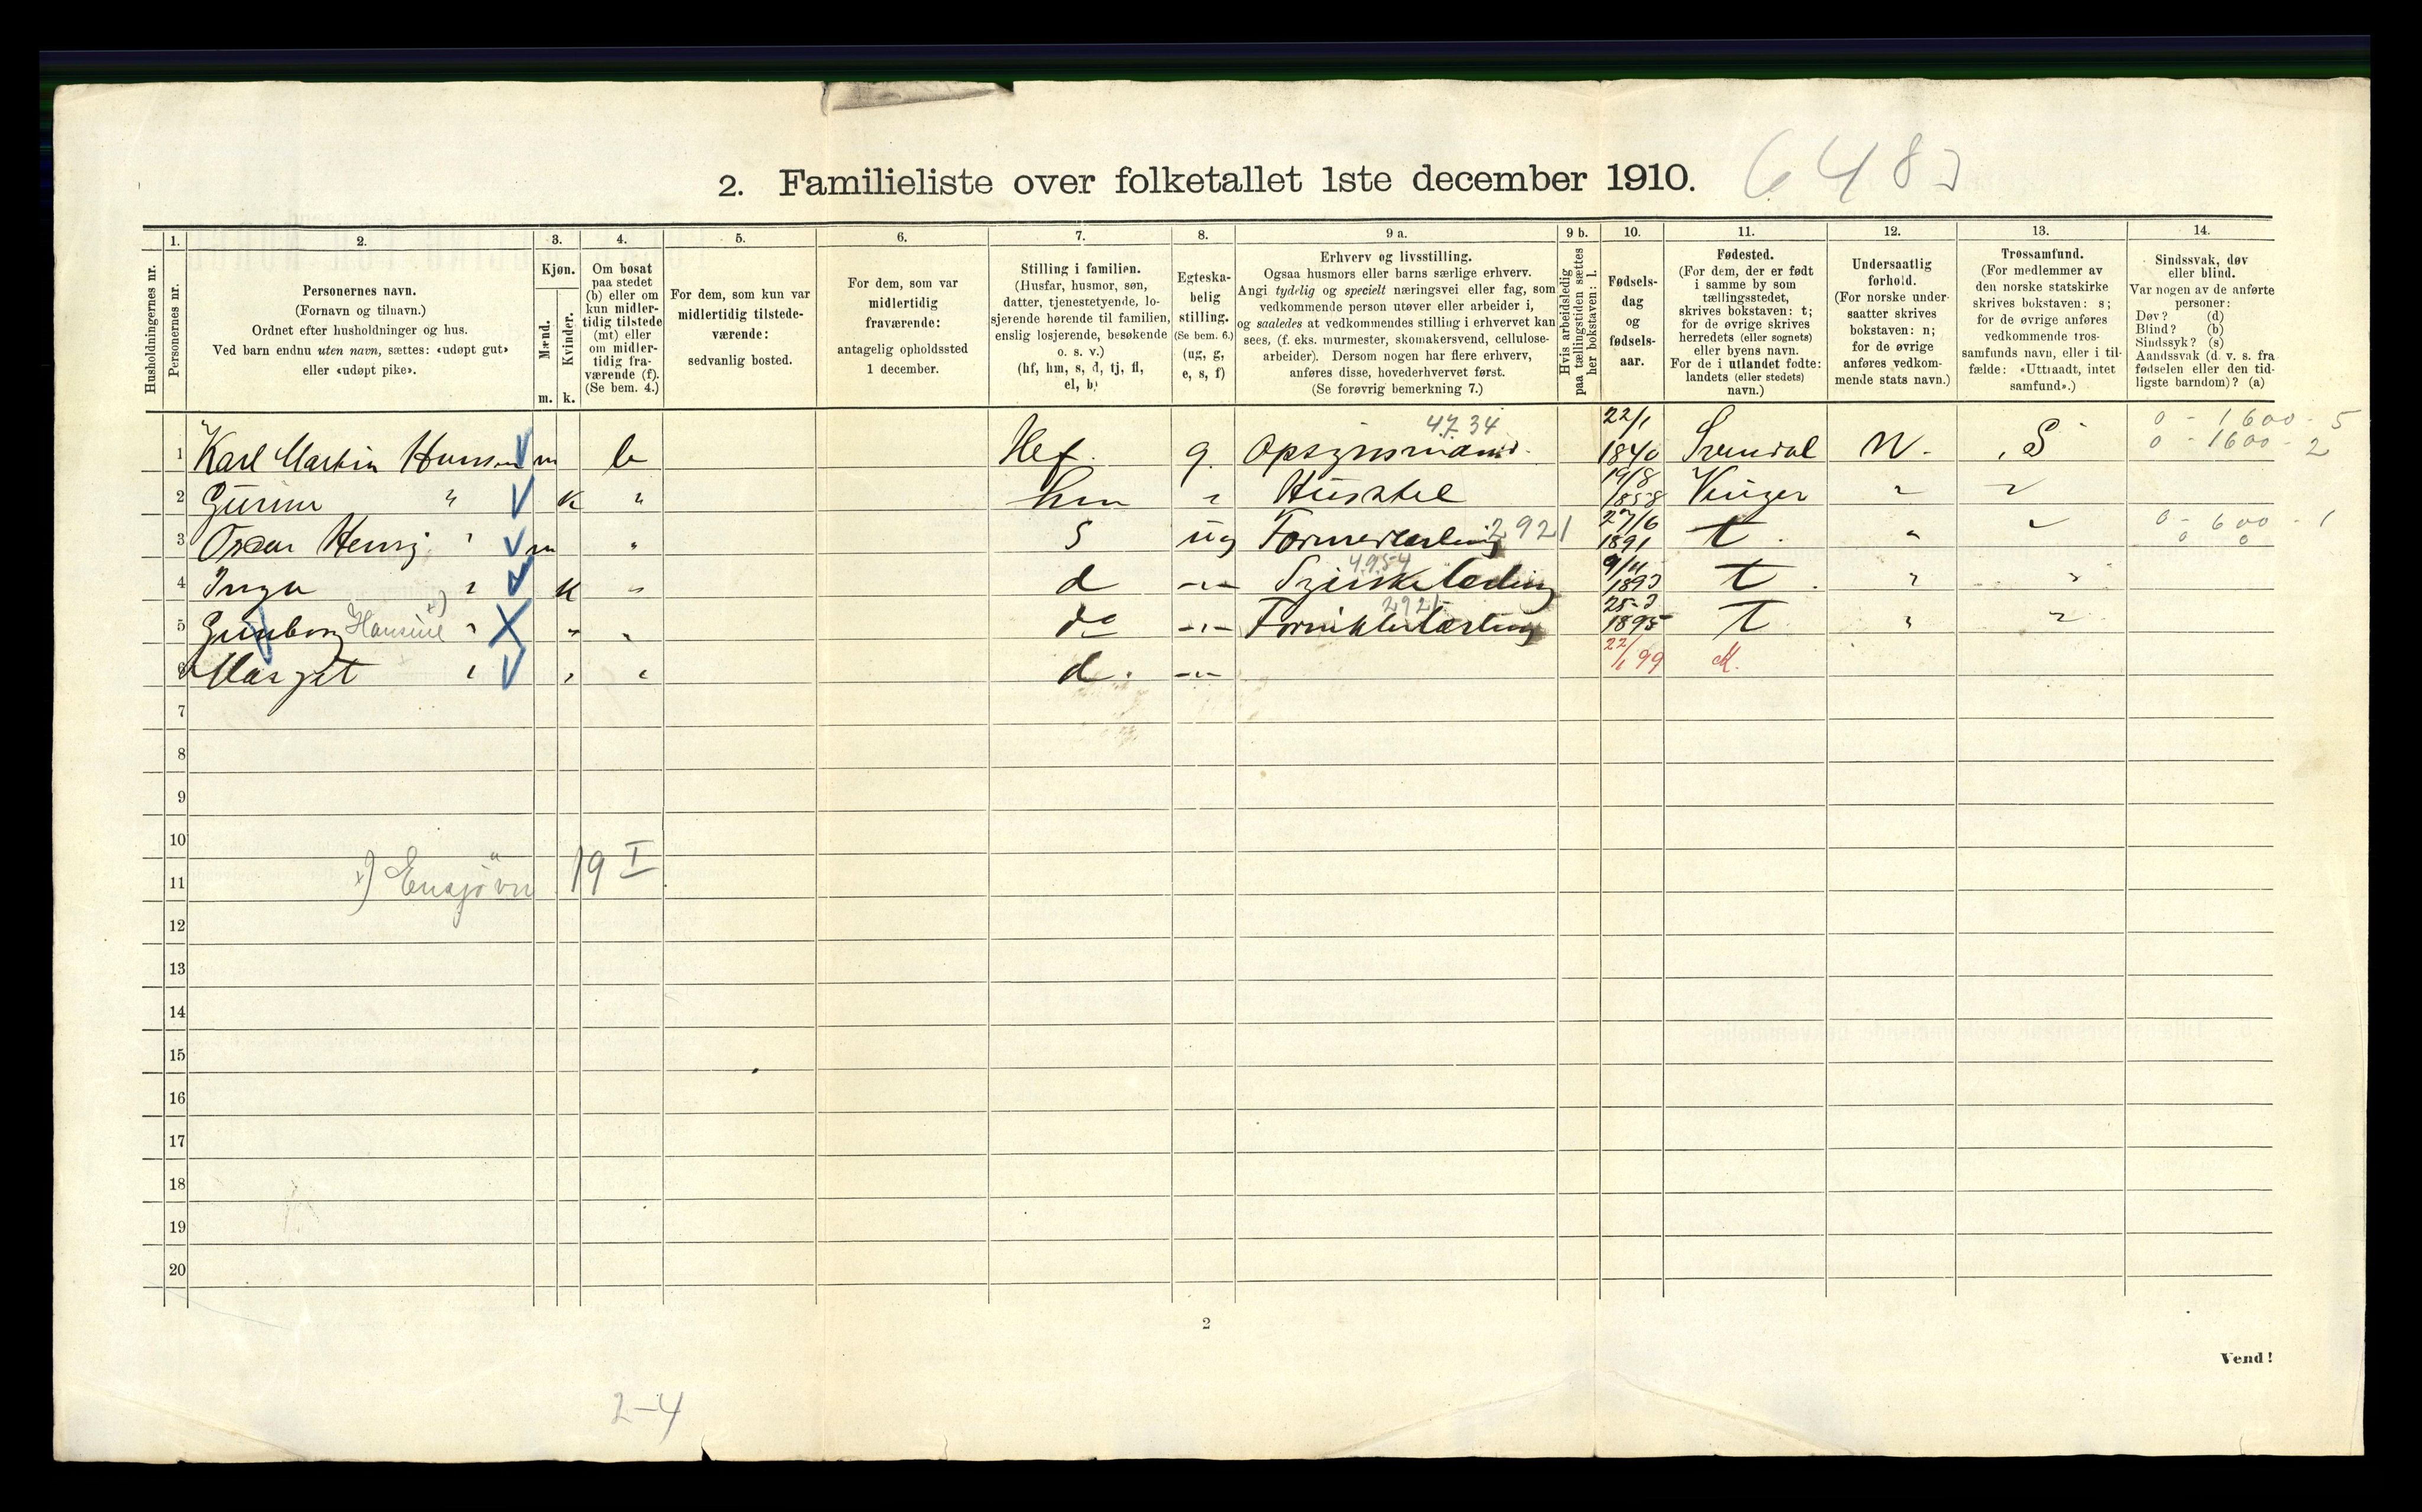 2. Familieliste over folketallet 1ste december 1910. 6483
Husholdningernes nr.
1. Personernes nr.
2. Personernes navn.
(Fornavn og tilnavn.)
Ordnet efter husholdninger og hus.
Ved barn endnu uten navn, sættes: «udøpt gut»
eller «udøpt pike».
3. Kjøn.
Mænd. Kvinder.
m. k.
4. Om bosat
paa stedet
(b) eller om
kun midler-
tidig tilstede
(mt) eller
om midler-
tidig fra-
værende (f).
(Se bem. 4.)
5. For dem, som kun var
midlertidig tilstede-
værende:
sedvanlig bosted.
6. For dem, som var
midlertidig
fraværende:
antagelig opholdssted
1 december.
7. Stilling i familien.
(Husfar, husmor, søn,
datter, tjenestetyende, lo-
sjerende hørende til familien,
enslig losjerende, besøkende
o. s. v.)
(hf, hm, s, d, tj, fl,
el, b)
8. Egteska-
belig
stilling.
(Se bem. 6.)
(ug, g,
e, s, f)
9 a. Erhverv og livsstilling.
Ogsaa husmors eller barns særlige erhverv.
Angi tydelig og specielt næringsvei eller fag, som
vedkommende person utøver eller arbeider i,
og saaledes at vedkommendes stilling i erhvervet kan
sees, (f. eks. murmester, skomakersvend, cellulose-
arbeider). Dersom nogen har flere erhverv,
anføres disse, hovederhvervet først.
(Se forøvrig bemerkning 7.)
9 b. Hvis arbeidsledig
paa tællingstiden sættes
her bokstaven: l.
10. Fødsels-
dag
og
fødsels-
aar.
11. Fødested.
(For dem, der er født
i samme by som
tællingsstedet,
skrives bokstaven: t;
for de øvrige skrives
herredets (eller sognets)
eller byens navn.
For de i utlandet fødte:
landets (eller stedets)
navn.)
12. Undersaatlig
forhold.
(For norske under-
saatter skrives
bokstaven: n;
for de øvrige
anføres vedkom-
mende stats navn.)
13. Trossamfund.
(For medlemmer av
den norske statskirke
skrives bokstaven: s;
for de øvrige anføres
vedkommende tros-
samfunds navn, eller i til-
fælde: «Uttraadt, intet
samfund».)
14. Sindssvak, døv
eller blind.
Var nogen av de anførte
personer:
Døv? (d)
Blind? (b)
Sindssyk? (s)
Aandssvak (d. v. s. fra
fødselen eller den tid-
ligste barndom)? (a)
4734 22/1 0 - 1600 - 5
1 Karl Martin Hansen m b Hef. g. Opsynsmand. 1840 N. S 0 - 1600 - 2
2 " k " hm " Husstel 19/8 1858 Vinger " "
3 Oscar Henrij " m " S ug Formerlærling 2921 27/6 1891 t. " " 0 - 600 - 1
0 0
4954
4 Inga " k " d -"- 9/11 1893 t. " "
2921
5 Hansine x) " " " do -"- Forniklerlærling 25-3 1895 t " "
6 Margit " " " d. -"- 22/1 99
7
8
9
10
11 x) Ensjøvn 19 I
12
13
14
15
16
17
18
19
20
2
Vend!
2-4